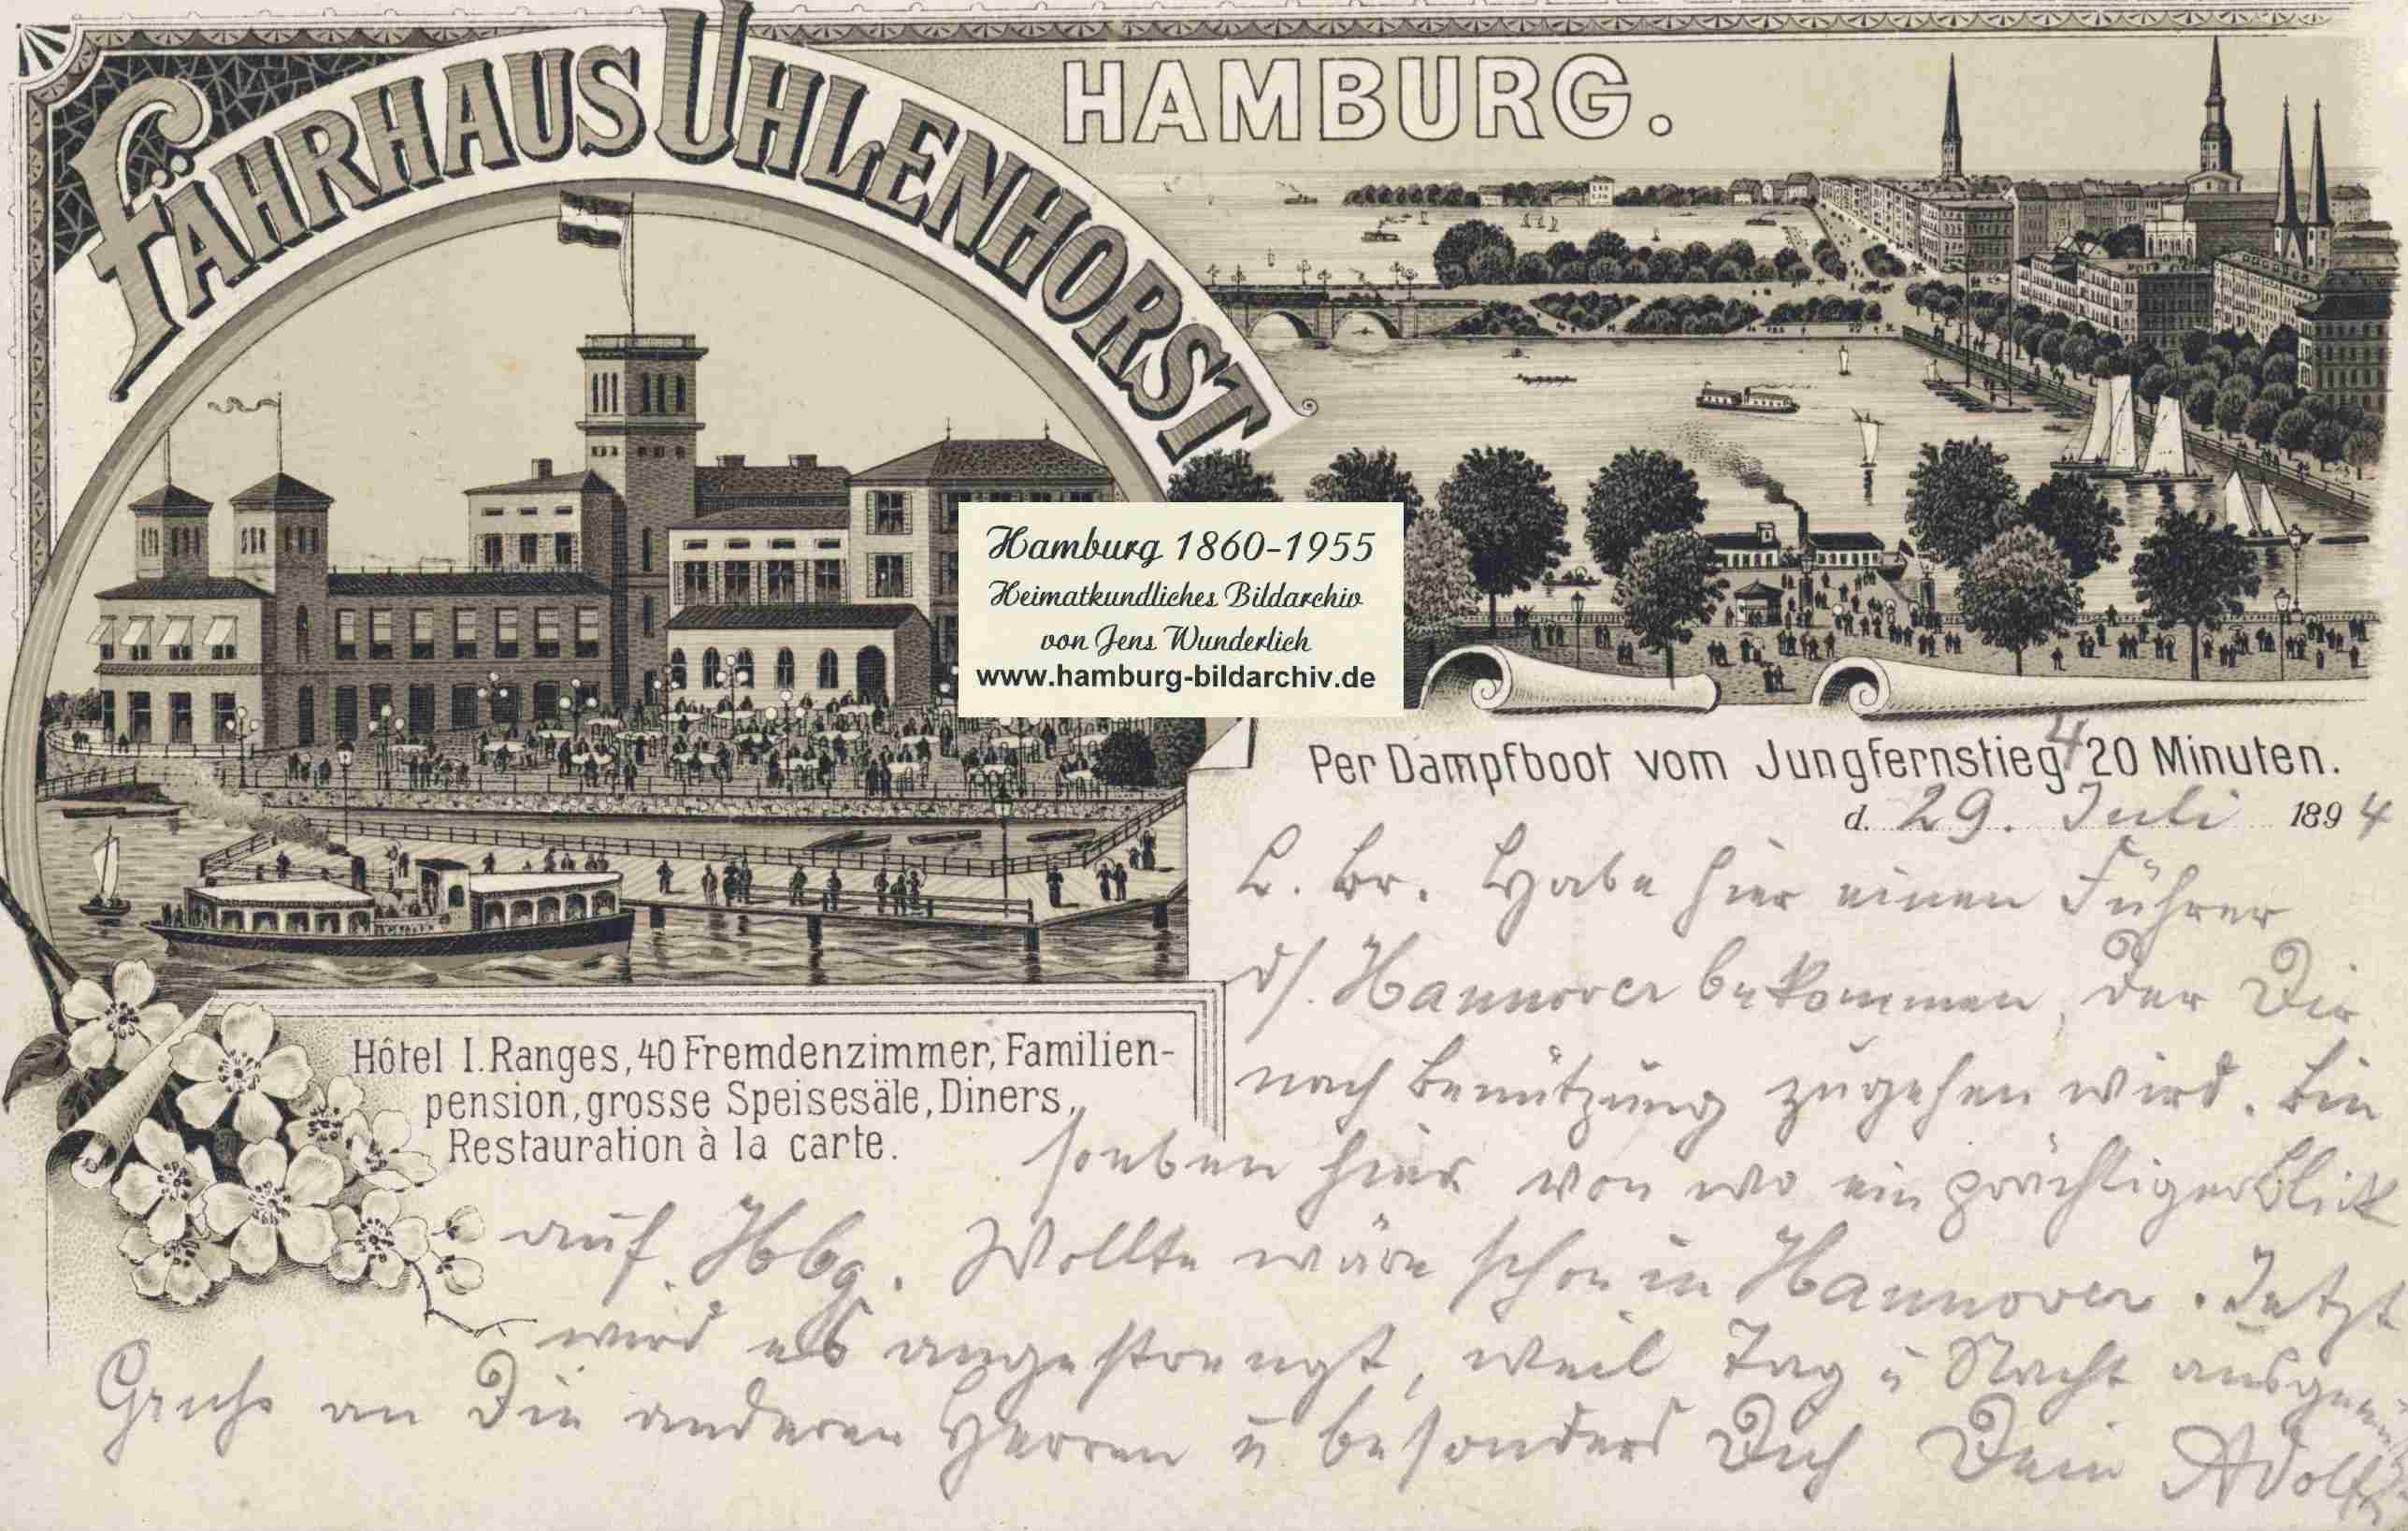 FÄHRHAUS UHLENHORST
HAMBURG.
Hamburg 1860-1955
Heimatkundliches Bildarchiv
von Jens Wunderlich
www.hamburg-bildarchiv.de
Per Dampfboot vom Jungfernstieg 20 Minuten.
4
d. 29. Juli 1894
L. Br. Habe hier einen Führer
d/. Hannover bekommen, der Dir
nach Benützung zugehen wird. Bin
Hôtel I. Ranges, 40 Fremdenzimmer, Familien-
pension, grosse Speisesäle, Diners,
Restauration à la carte.
soeben hier von wo ein prächtiger Blick
auf Hbg. Wollte wäre schon in Hannover. Jetzt
wird es angestrengt, weil Tag u Nacht
Gruß an Die anderen Herren u besonders Dich Dein Adolf